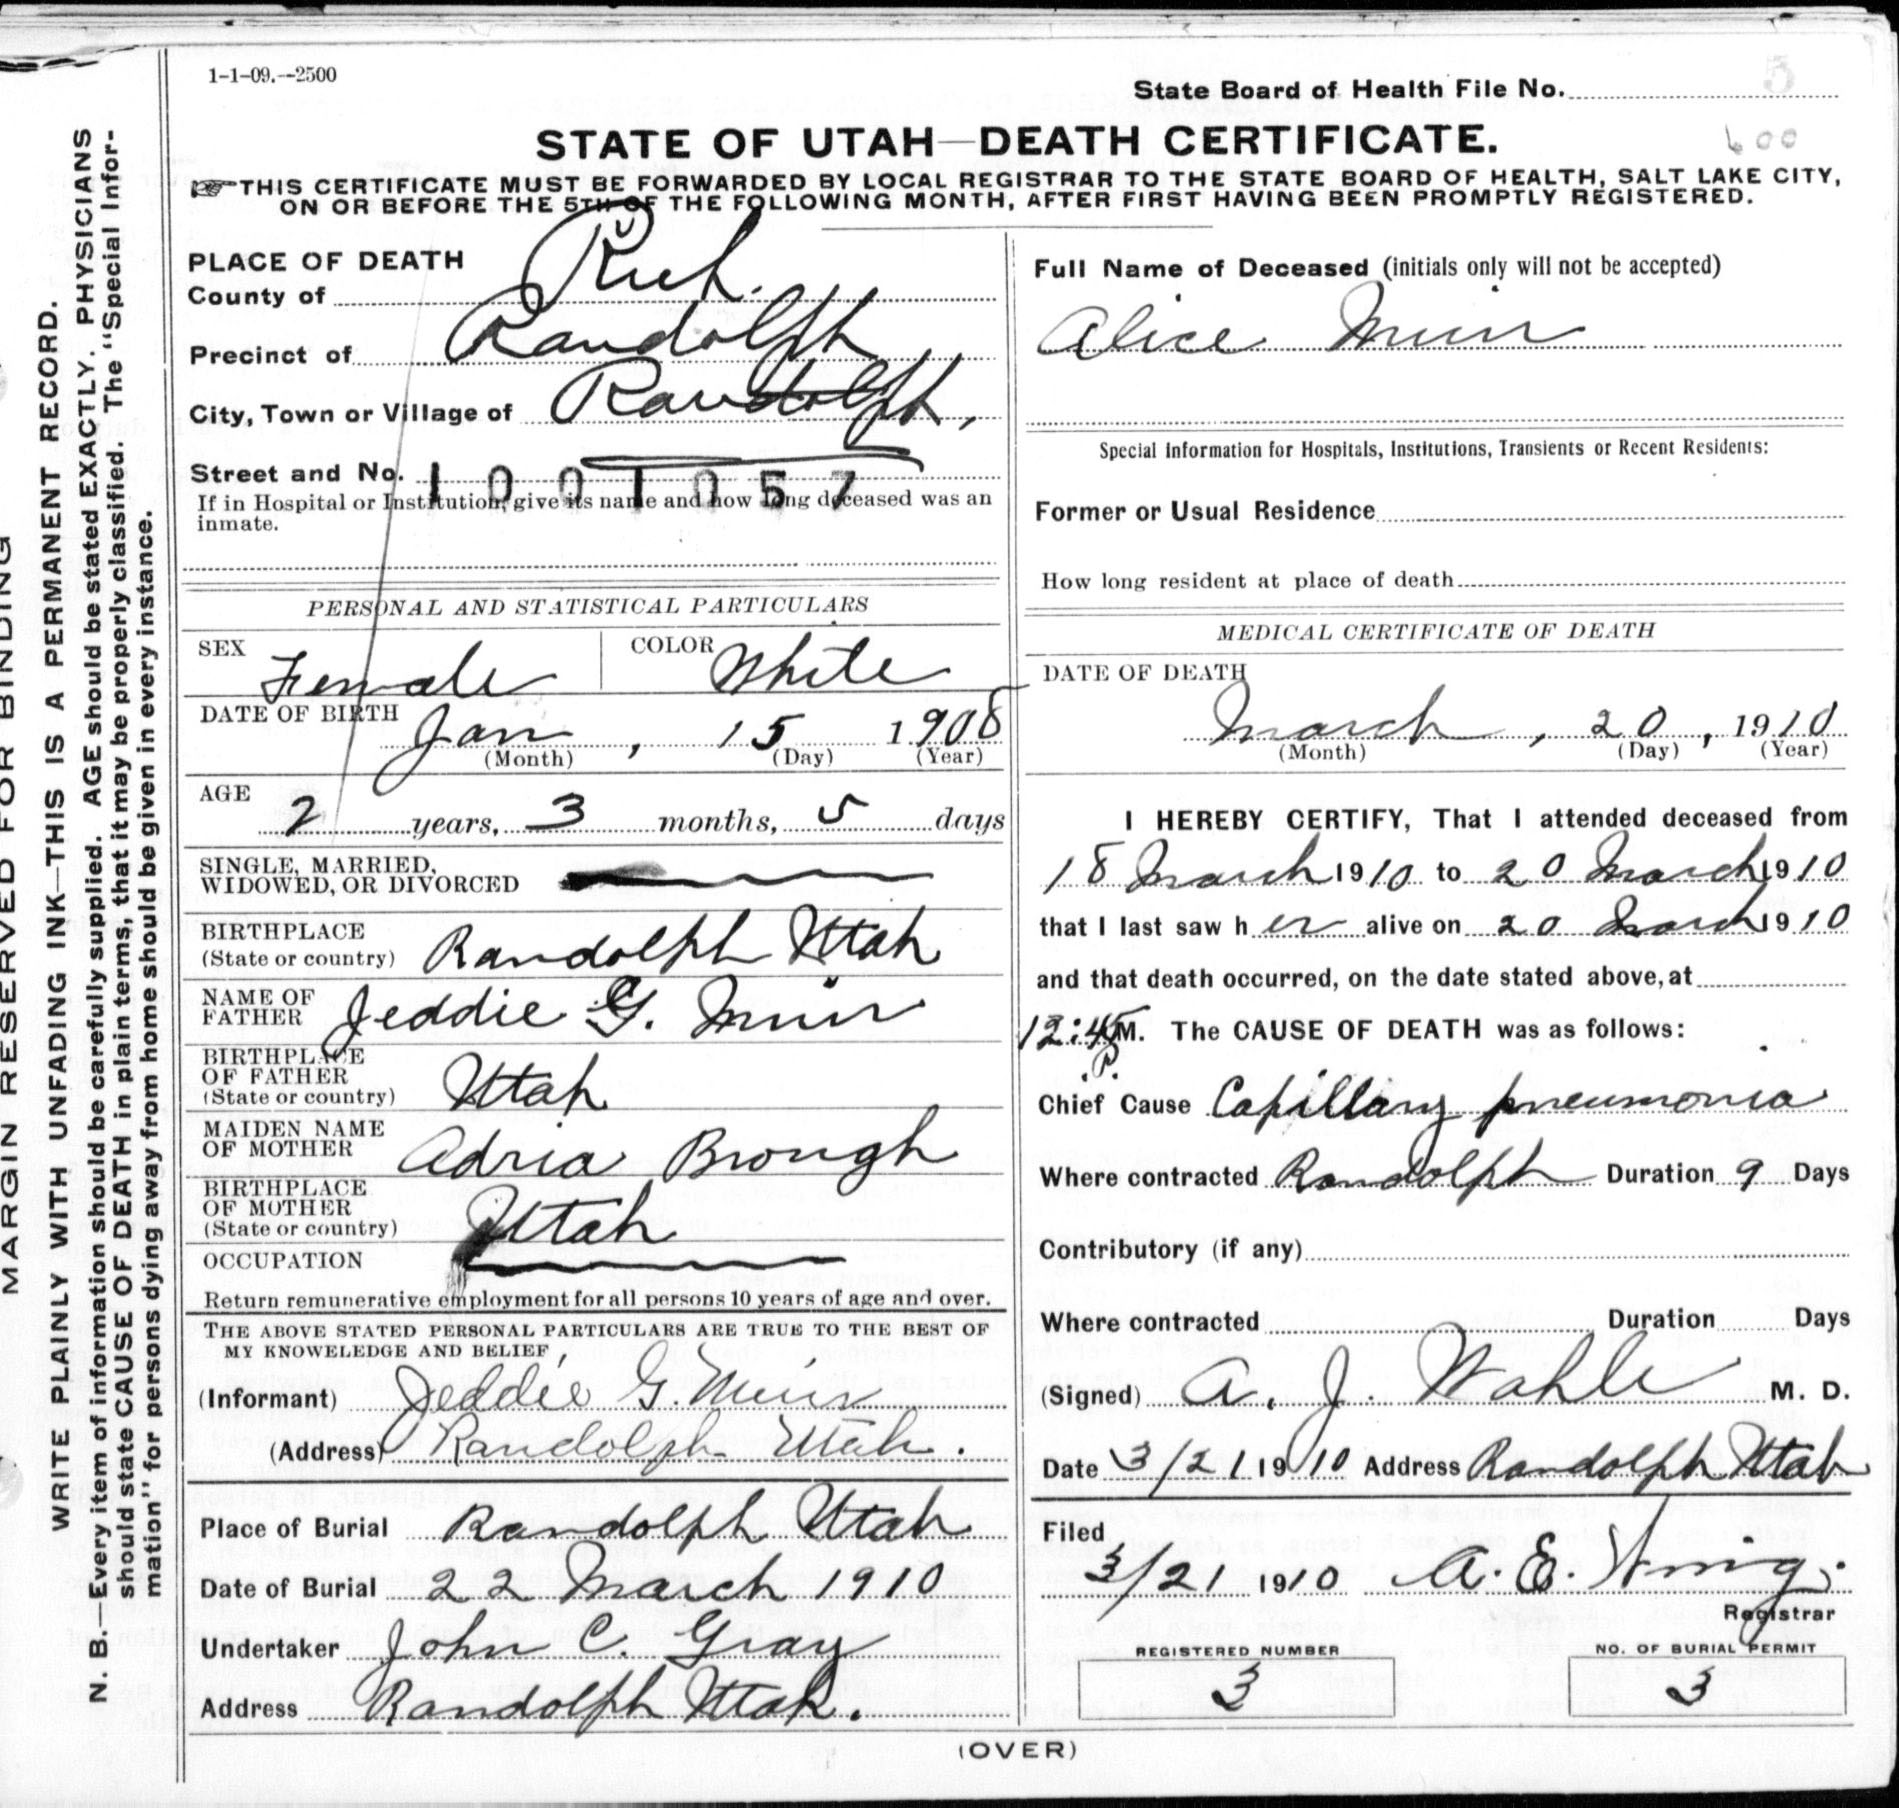 1-1-09.--2500
State Board of Health File No. 5
600
STATE OF UTAH—DEATH CERTIFICATE.
THIS CERTIFICATE MUST BE FORWARDED BY LOCAL REGISTRAR TO THE STATE BOARD OF HEALTH, SALT LAKE CITY,
ON OR BEFORE THE 5TH OF THE FOLLOWING MONTH, AFTER FIRST HAVING BEEN PROMPTLY REGISTERED.
PLACE OF DEATH
County of Rich.
Precinct of Randolph
City, Town or Village of Randolph,
Street and No. 1001057
If in Hospital or Institution, give its name and how long deceased was an
inmate.
PERSONAL AND STATISTICAL PARTICULARS
SEX Female COLOR White
DATE OF BIRTH Jan, 15 1908
(Month) (Day) (Year)
AGE
2 years, 3 months, 5 days
SINGLE, MARRIED,
WIDOWED, OR DIVORCED
BIRTHPLACE
(State or country) Randolph Utah
NAME OF
FATHER Jeddie G. Muir
BIRTHPLACE
OF FATHER
(State or country) Utah
MAIDEN NAME
OF MOTHER Adria Brough
BIRTHPLACE
OF MOTHER
(State or country) Utah
OCCUPATION
Return remunerative employment for all persons 10 years of age and over.
THE ABOVE STATED PERSONAL PARTICULARS ARE TRUE TO THE BEST OF
MY KNOWELEDGE AND BELIEF,
(Informant) Jeddie G. Muir
(Address) Randolph Utah.
Place of Burial Randolph Utah
Date of Burial 22 March 1910
Undertaker John C. Gray
Address Randolph Utah.
Full Name of Deceased (initials only will not be accepted)
Alice Muir
Special Information for Hospitals, Institutions, Transients or Recent Residents:
Former or Usual Residence
How long resident at place of death
MEDICAL CERTIFICATE OF DEATH
DATE OF DEATH
March, 20, 1910
(Month) (Day) (Year)
I HEREBY CERTIFY, That I attended deceased from
18 March 1910 to 20 March 1910
that I last saw her alive on 20 March 1910
and that death occurred, on the date stated above, at
12:45 M. The CAUSE OF DEATH was as follows:
P.
Chief Cause Capillary pneumonia
Where contracted Randolph Duration 9 Days
Contributory (if any)
Where contracted Duration Days
(Signed) A. J. Wahle M. D.
Date 3/21 1910 Address Randolph Utah
Filed
3/21 1910 A. E.
Registrar
REGISTERED NUMBER
3
NO. OF BURIAL PERMIT
3
(OVER)
MARGIN RESERVED FOR BINDING
WRITE PLAINLY WITH UNFADING INK—THIS IS A PERMANENT RECORD.
N. B.—Every item of information should be carefully supplied. AGE should be stated EXACTLY. PHYSICIANS
should state CAUSE OF DEATH in plain terms, that it may be properly classified. The "Special Infor-
mation" for persons dying away from home should be given in every instance.